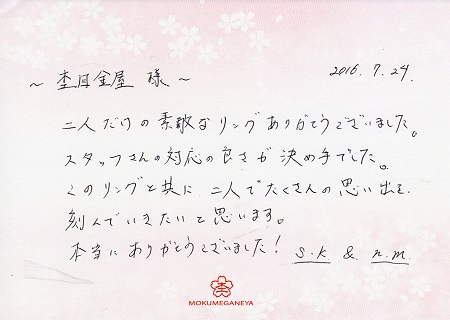 2016.7.24.
～杢目金屋 様～
二人だけの素敵なリングありがとうございました。
スタッフさんの対応の良さが決め手でした。
このリングと共に 二人でたくさんの思い出を
刻んでいきたいと思います。
本当にありがとうございました！ s.k & n.m.
杢
MOKUMEGANEYA